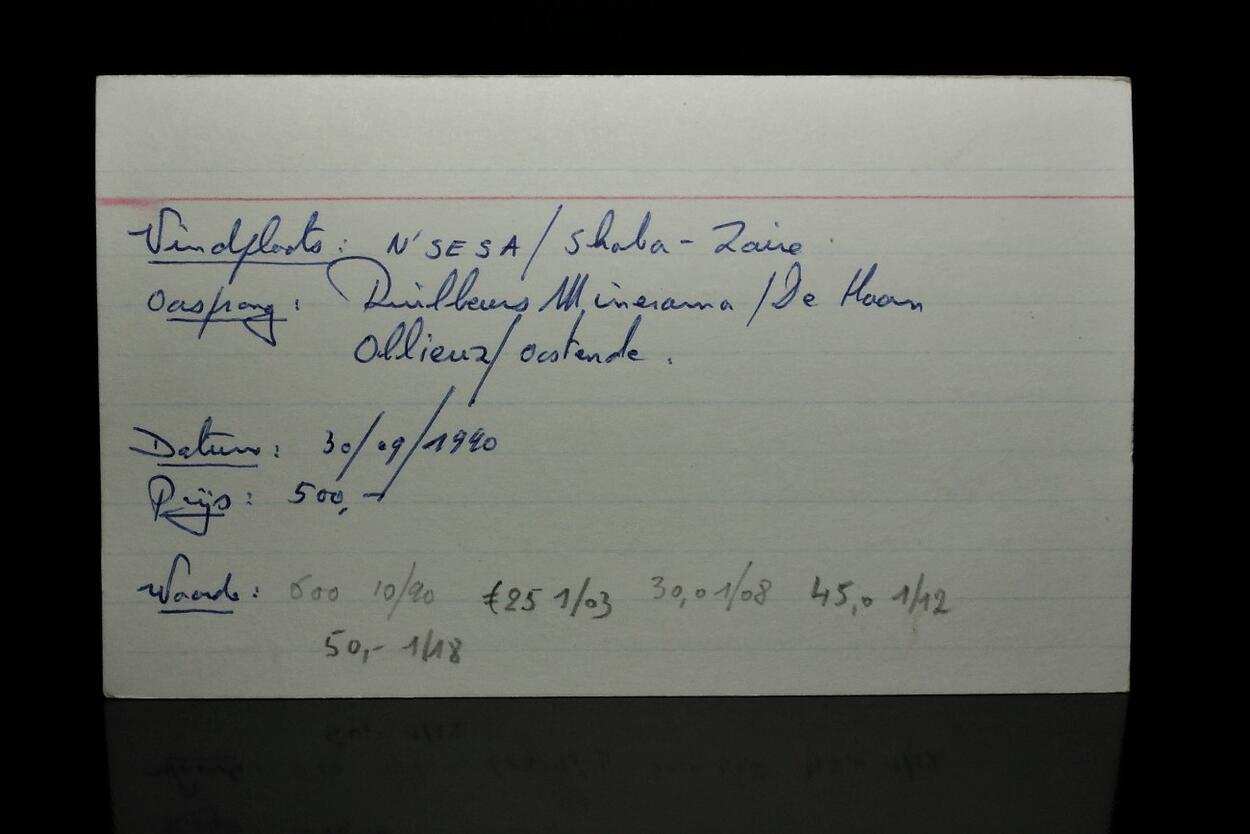 Vindplaats: N'SESA/Shaba - Zaire
Oorsprong: Ruilbeurs Minerama/De Haan
Ollieuz/Oostende.
Datum: 30/09/1990
Prijs: 500,-
Waarde: 600 10/90 €25 1/03 30,0 1/08 45,0 1/12
50,- 1/18